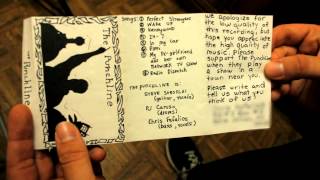 The Punchline
Punchline
Songs:
① Perfect Strangers
② Wake up
③ Honeycomb
④ 24-7
⑤ In my car
⑥ Rpm
⑦ My Ex-girlfriend
has her own
Network TV Show
⑧ Radio Dispatch
THE PUNCHLINE IS:
STEVE SOBOSLAI
(guitar, vocals)
PJ Caruso
(drums)
Chris Fafalios
(bass, vocals)
We apologize for
the low quality of
this recording, but
hope you appreciate
the high quality of
music. Please
support The Punchline
when they play
a show in a
town near you.
Please write and
tell us what you
think of us!